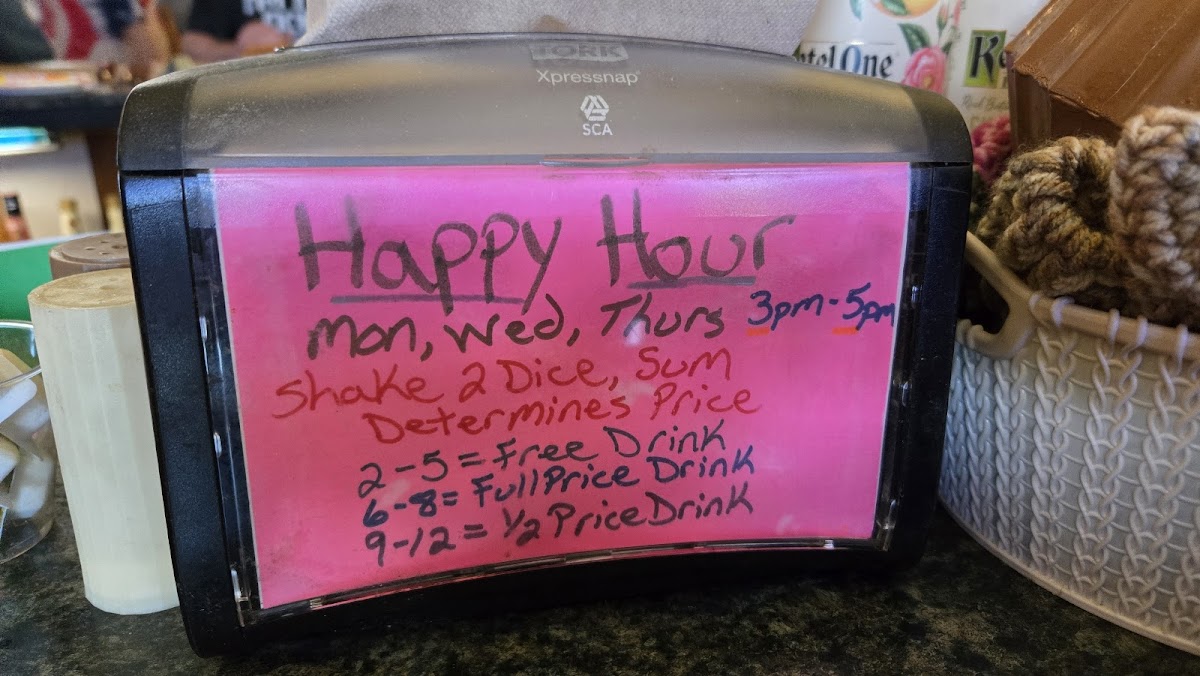 TORK
Xpressnap®
SCA
Happy Hour
Mon, Wed, Thurs 3pm-5pm
Shake 2 Dice, Sum
Determines Price
2-5 = Free Drink
6-8 = Full Price Drink
9-12 = 1/2 Price Drink
tel One